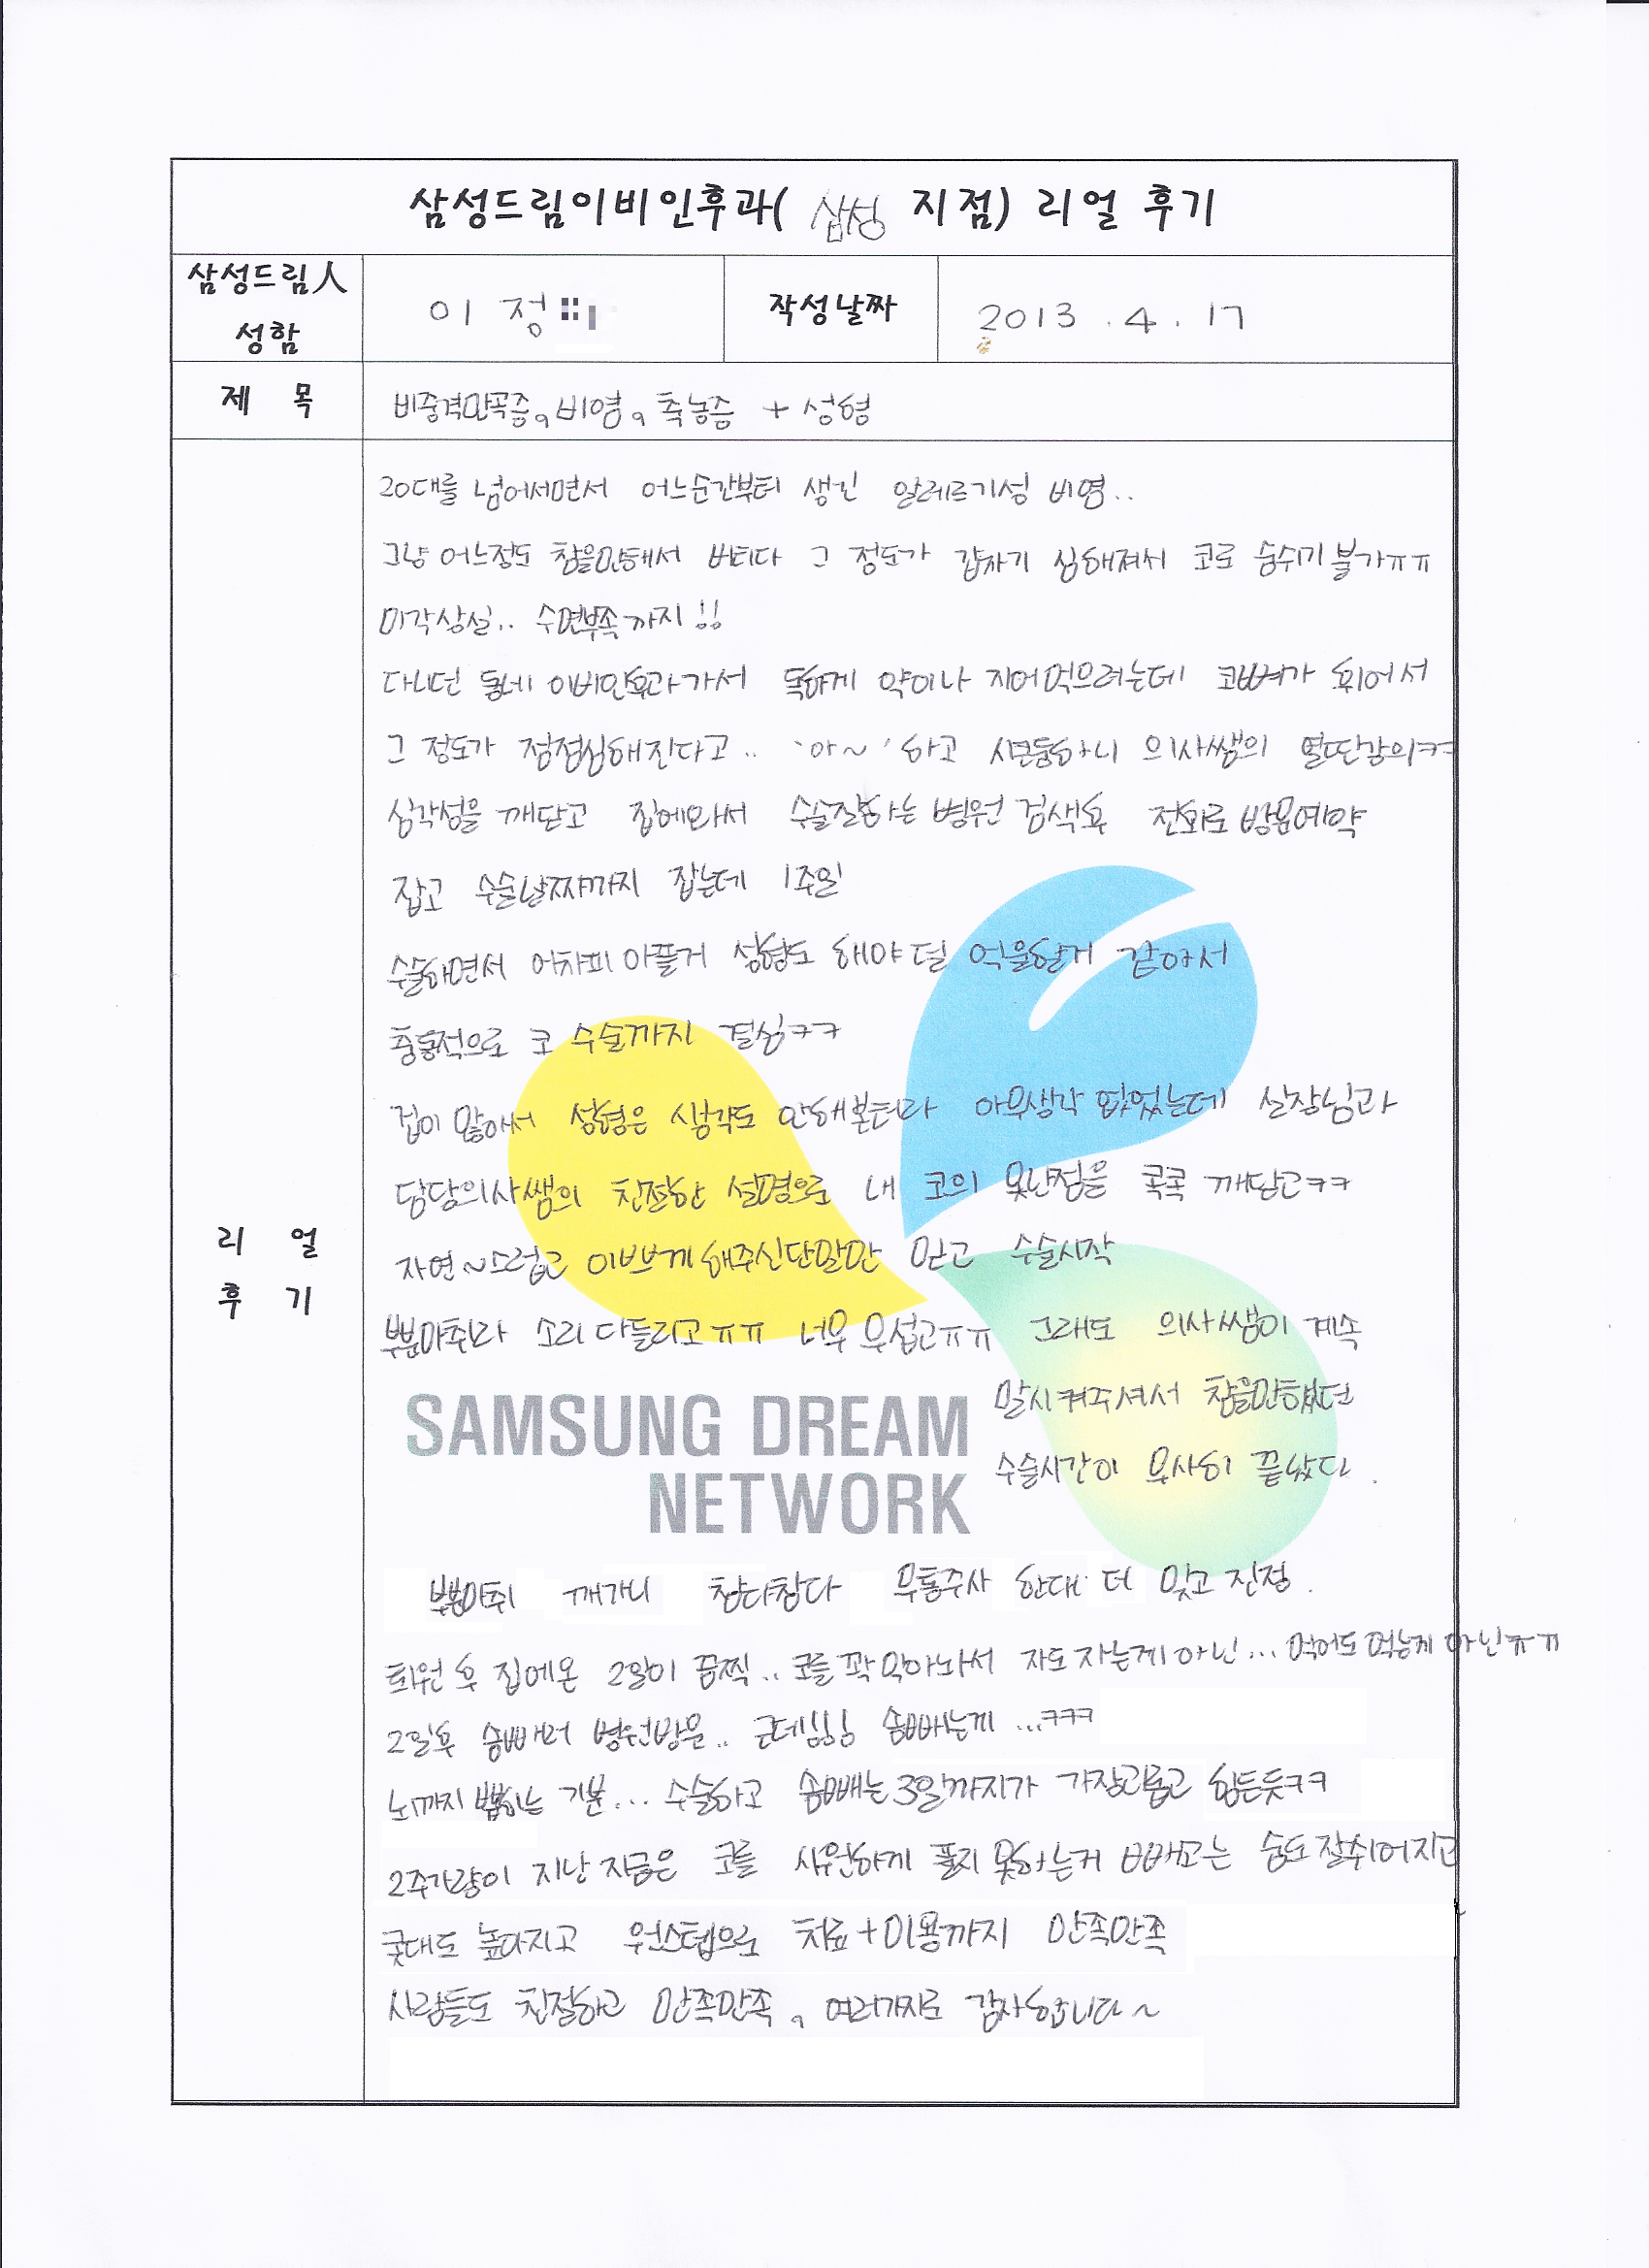 삼성드림이비인후과( 삼성 지점) 리얼 후기
삼성드림人
성함
이 정
작성날짜
2013 . 4 . 17
제 목
비중격만곡증, 비염, 축농증 + 성형
20대를 넘어서면서 어느순간부터 생긴 알레르기성 비염..
그냥 어느정도 참을만해서 버티다 그 정도가 갑자기 심해져서 코로 숨쉬기 불가ㅠㅠ
미각상실.. 수면부족까지!!
다니던 동네 이비인후과가서 독하게 약이나 지어먹으려는데 코뼈가 휘어서
그 정도가 점점심해진다고.. '아~' 하고 시큰둥하니 의사쌤의 열띤강의ㅋㅋ
심각성을 깨닫고 집에와서 수술잘하는 병원 검색후 전화로 방문예약
잡고 수술날짜까지 잡는데 1주일
수술하면서 어차피 아플거 성형도 해야 덜 억울할거 같아서
충동적으로 코 수술까지 결심ㅋㅋ
겁이 많아서 성형은 생각도 안해본터라 아무생각 없었는데 실장님과
담당의사쌤의 친절한 설명으로 내 코의 못난점을 콕콕 깨닫고ㅋㅋ
자연~스럽고 이쁘게해주신단말만 믿고 수술시작
부분마취라 소리 다들리고ㅠㅠ 너무 무섭고ㅠㅠ 그래도 의사쌤이 계속
말시켜주셔서 참을만했던
수술시간이 무사히 끝났다.
SAMSUNG DREAM
NETWORK
부분마취 깨가니 참다참다 무통주사 한대 더 맞고 진정.
퇴원 후 집에온 2일이 끔찍.. 코를 꽉 막아놔서 자도 자는게 아닌... 먹어도 먹는게 아닌ㅠㅠ
2일후 솜빼러 병원방문.. 근데 솜빼는게 ...ㅋㅋㅋ
뇌까지 뽑히는 기분... 수술하고 솜빼는 3일까지가 가장괴롭고 힘든듯ㅋㅋ
2주가량이 지난 지금은 코를 시원하게 풀지 못하는거 빼고는 숨도 잘쉬어지고
콧대도 높아지고 원스텝으로 치료+미용까지 만족만족
사람들도 친절하고 만족만족, 여러가지로 감사합니다~
리 얼
후 기